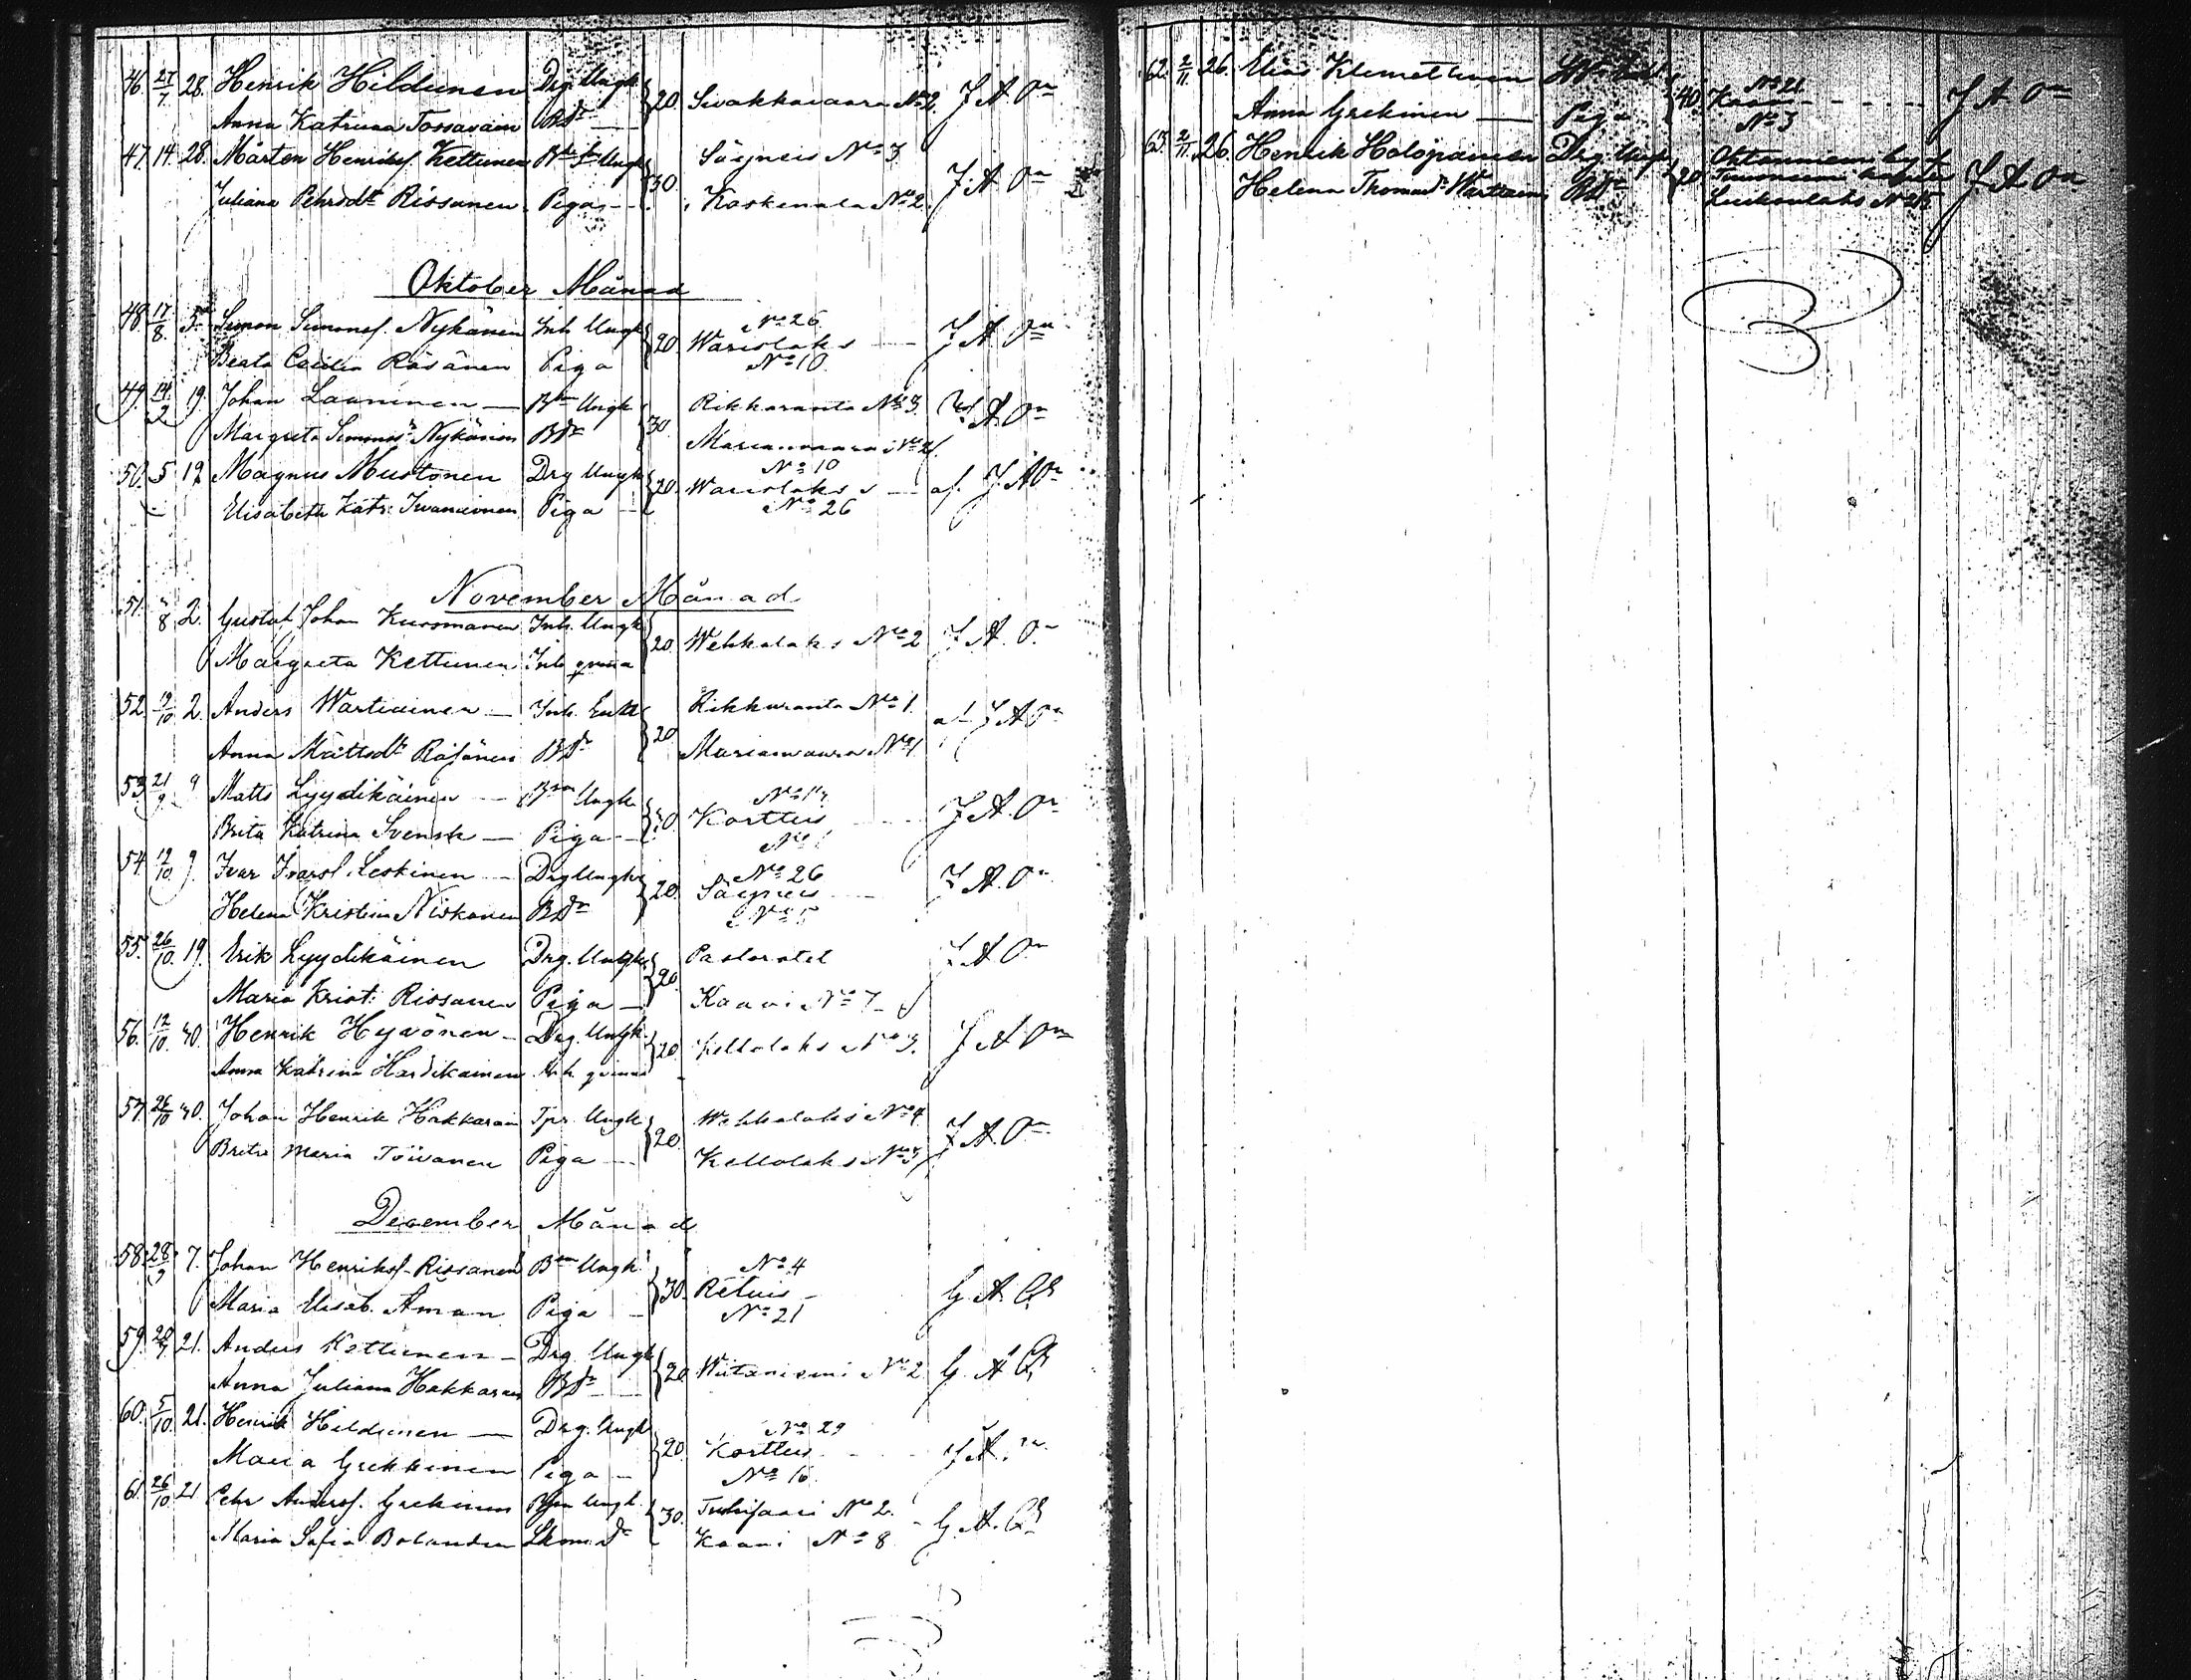 46. 27/7 28. Henrik Hildunen Drg. Ungk. 20. Sivakkavaara No 2. J. A. On
Anna Katrina Tossavain BDr
47. 14. 28. Mårten Henriksf. Kettunen Ungk 30. Säyneis No 3. J. A. On
Juliana Pehrsdtr Rissanen. Piga Koskenala No 2.
Oktober Månad
48. 17/8. 5. Simon Simonsf. Nykänen Inh. Ungk 20. No 26 J. A. On
Warislaks
Beata Räsänen Piga No 10.
49. 14/2 19. Johan Launinen Bon Ungk 30. Rikkaranta No 3. J. A. On
Margreta Simonsdr Nykänen BDr Marianvaara No
50. 5 19. Magnus Mustonen Drg Ungk 20. No 10 af. J A On
Warislaks
Elisabeth Katr: Piga No 26
November Månad
51. 8 2. Gustaf Johan Kuosmanen Inh. Ungk 20. Wehkalaks No 2 J. A. On
Margreta Kettunen Inh. qvinna
52. 19/10. 2. Anders Wartiainen Inh. Enkl 20 Rikkaranta No 1. af J A On
Anna Mattsdtr Räsänen BDr Marianvaara No 1
53. 21/9 9 Matts Lyydikäinen Bon Ungk. No J. A. On
Kortteis
Brita Katrina Svensk Piga No
54. 19/10. 9. Ivar Ivarsf. Leskinen Drg Ungk 20. No 26 J. A. On
Säyneis
Helena Kristina Niskanen BDr No 5
55. 26/10. 19. Erik Lyydikäinen Drg. Ungk. 20. Pastoratet J. A. On
Maria Krist: Rissanen Piga Kaavi No 7
56. 12/10. 30. Henrik Hyvönen Drg. Ungk. 20. Kellolaks No 3. J. A. On
Anna Katrina Hardikainen Inh. qvinna
57. 26/10 30. Johan Henrik Hakkarain Tpr. Ungk 20. Wehkalaks No 4 J. A. On
Brita Maria Töivanen Piga Kellolaks No 3
December Månad
58. 28/9 7. Johan Henriksf. Rissanen Bon Ungk. 30. No 4 G. A.
Retuis
Maria Elisab. Åman Piga No 21
59. 20/9. 21. Anders Kettunen Drg. Ungk 20. Wiitaniemi No 2 G. A.
Anna Juliana Hakkarain BDr
60. 5/10. 21. Henrik Hildunen Drg. Ungk 20. No 29 J. A. On
Kortteis
Maria Grekkinen Piga No 16.
61. 26/10 21 Pehr Andersf. Grekinen Bon Ungk. 30. No 2. G. A.
Maria Sofia Bolander Kaavi No 8
62. 2/11. 26. Elias Klemettinen 40. No 21 J. A. On
Kaavi
Anna Grekinen Piga No 3
63. 2/11. 26. Henrik Holopainen Drg. Ungk. 20 J. A. On
Helena Thomasdr Wartiain BDr Luikonlaks No 25